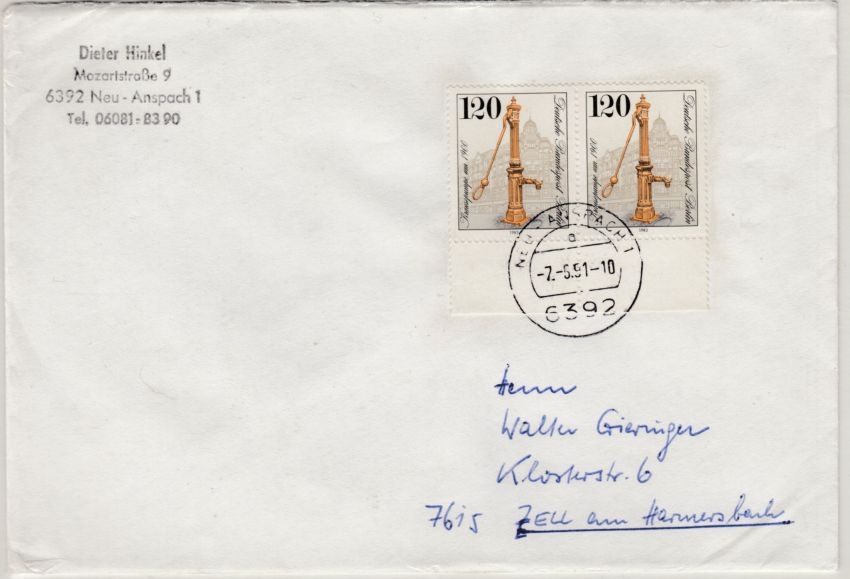 Dieter Hinkel
Mozartstraße 9
6392 Neu-Anspach 1
Tel. 06081-8390
120
Deutsche Bundespost Berlin
1983
120
Deutsche Bundespost Berlin
1983
NEU-ANSPACH 1
a
-7.-6.91-10
6392
Herrn
Walter Gieringer
Klosterstr. 6
7615 ZELL am Harmersbach